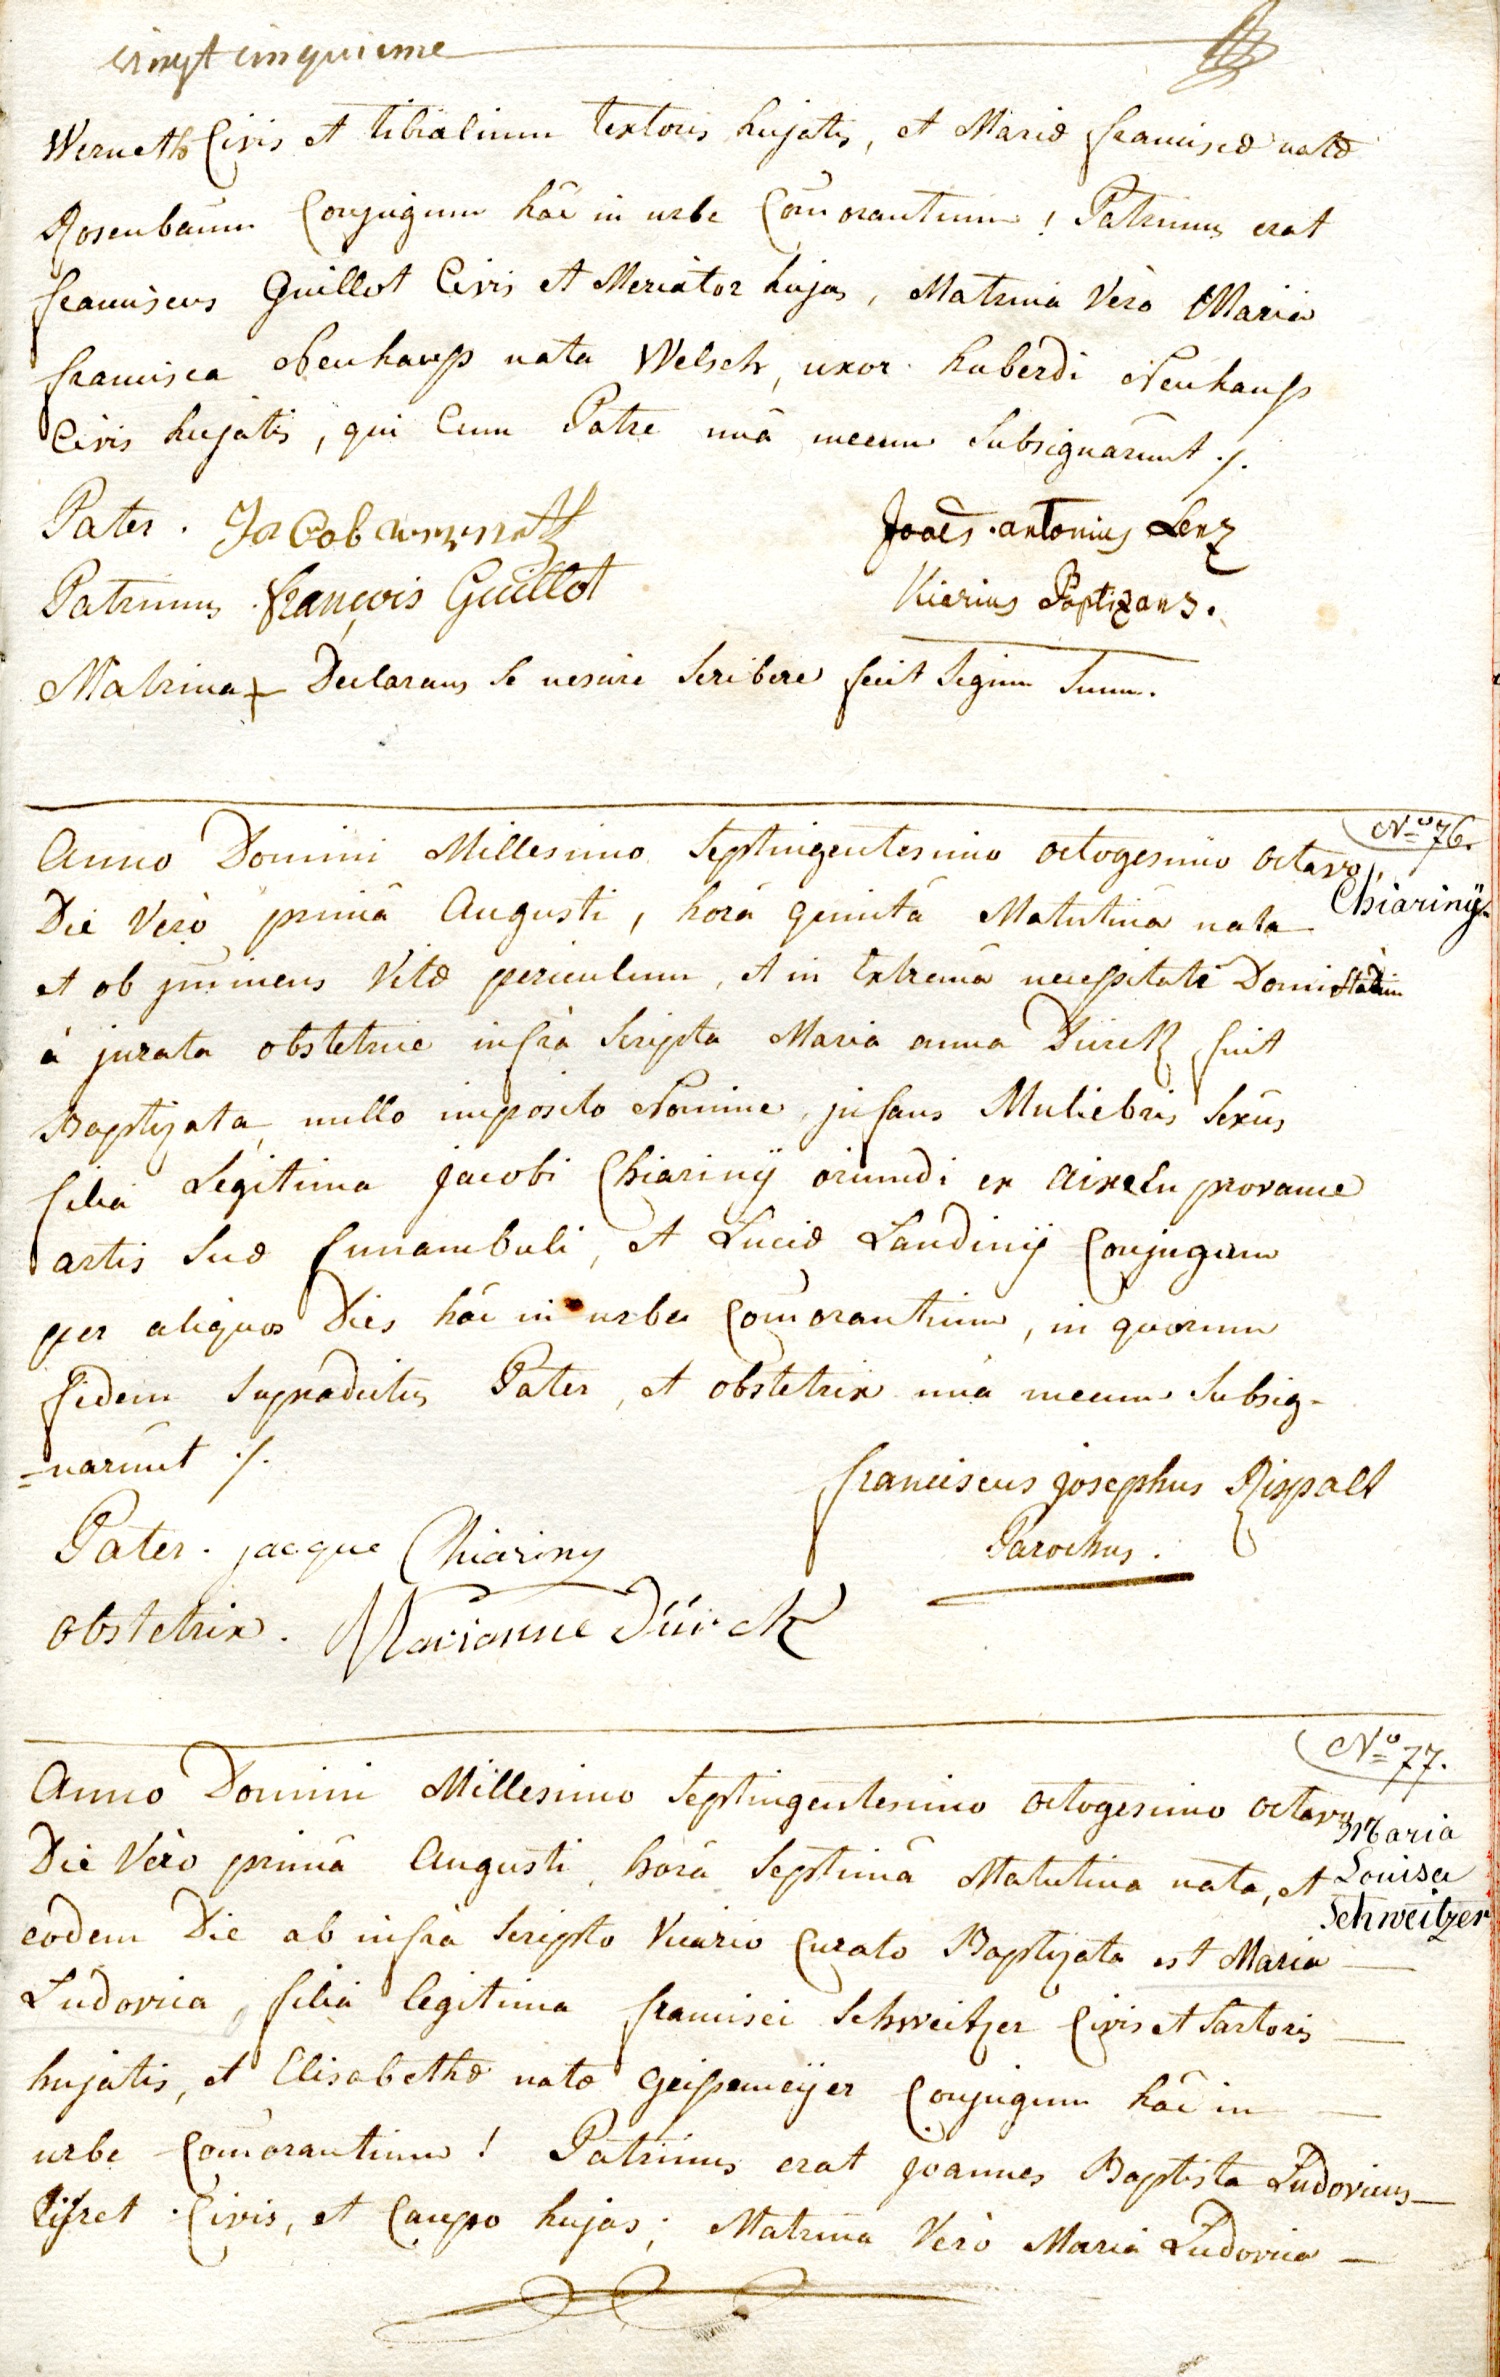 vingt cinquieme
Werneth Civis et tibialium textoris hujatis, et Mariæ franciscæ natæ
Rosenbaum Conjugum hâc in urbe Com̄orantium! Patrinus erat
franciscus Guillot Civis et Mercator hujas, Matrina Verò Maria
francisca Neuhauß nata Welsch, uxor huberdi Neuhauß
Civis hujatis, qui Cum Patre unâ mecum Subsignarunt ./.
Pater. Jacob
Joaēs. antonius Lenz
Patrinus. françois Guillot
Vicarius Baptizans.
Matrina + Declarans se nescire scribere fecit Signum Suum.
N.º 76.
Anno Domini Millesimo Septingentesimo octogesimo octavo,
Chiarinÿ
Die Verò primâ Augusti, horâ quintâ Matutina nata
et ob jm̄inens Vitæ periculum, et in Extremâ necessitate Domi Statim
à jurata obstetrice infrà Scripta Maria anna Dürck fuit
Baptizata, nullo imposito Nomine, jnfans Muliebris Sexûs
filia Legitima jacobi Chiarinÿ oriundi ex aix en provance
artis suæ funambuli, et Luciæ Landinÿ Conjugum
per aliquos Dies hâc in urbe Com̄orantium, in quorum
fidem supradictus Pater, et obstetrix unà mecum Subsig-
=narunt ./.
franciscus josephus Rispalt
Parochus.
Pater. jacque Chiariny
obstetrix. Marianne Dürck
N.º 77.
Anno Domini Millesimo Septingentesimo octogesimo octavo
Maria
Louisa
Schweitzer
Die Verò primâ Augusti, horâ Septimâ Matutina nata, et
eodem Die ab infrà Scripto Vicario Curato Baptizata est Maria
Ludovica, filia legitima francisci Schweitzer Civis et Sartoris
hujatis, et Elisabethæ natæ Geissemeijer Conjugum hâc in
urbe Com̄orantium! Patrinus erat joannes Baptista Ludovicus
Civis, et Caupo hujas; Matrina Verò Maria Ludovica